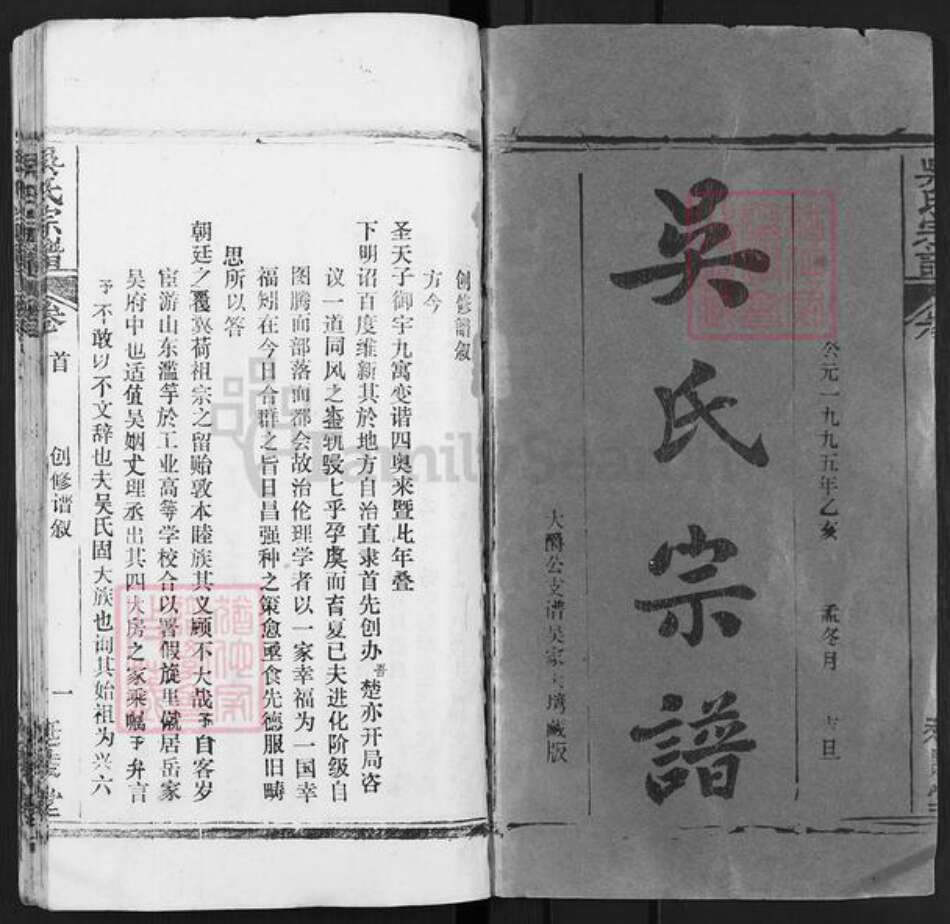 公元一九九五年乙亥 孟冬月 吉旦
吳氏宗譜
大爵公支谱吴家 藏版
创修譜叙
方今
圣天子御宇九寓变谐四奥来暨比年叠
下明诏百度维新其於地方自治直隶首先创办吾楚亦开局咨
议一道同风之盛骎骎乎孕虞而育夏已夫进化阶级自
图腾而部落而都会故治伦理学者以一家幸福为一国幸
福矧在今日合群之旨日昌强种之策愈亟食先德服旧畴
思所以答
朝廷之覆冀荷祖宗之留贻敦本睦族其义顾不大哉予自客岁
宦游山东滥竽於工业高等学校合以署假旋里僦居岳家
吴府中也适值吴姻丈理丞出其四大房之家乘嘱予弁言
予不敢以不文辞也夫吴氏固大族也询其始祖为兴六
吳氏宗譜
卷首
创修谱叙
一